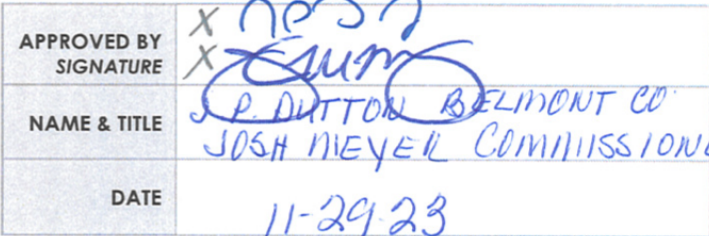 APPROVED BY
SIGNATURE
X
X
NAME & TITLE
J. P. DUTTON BELMONT CO
JOSH MEYER COMMISSIONE
DATE
11-29-23